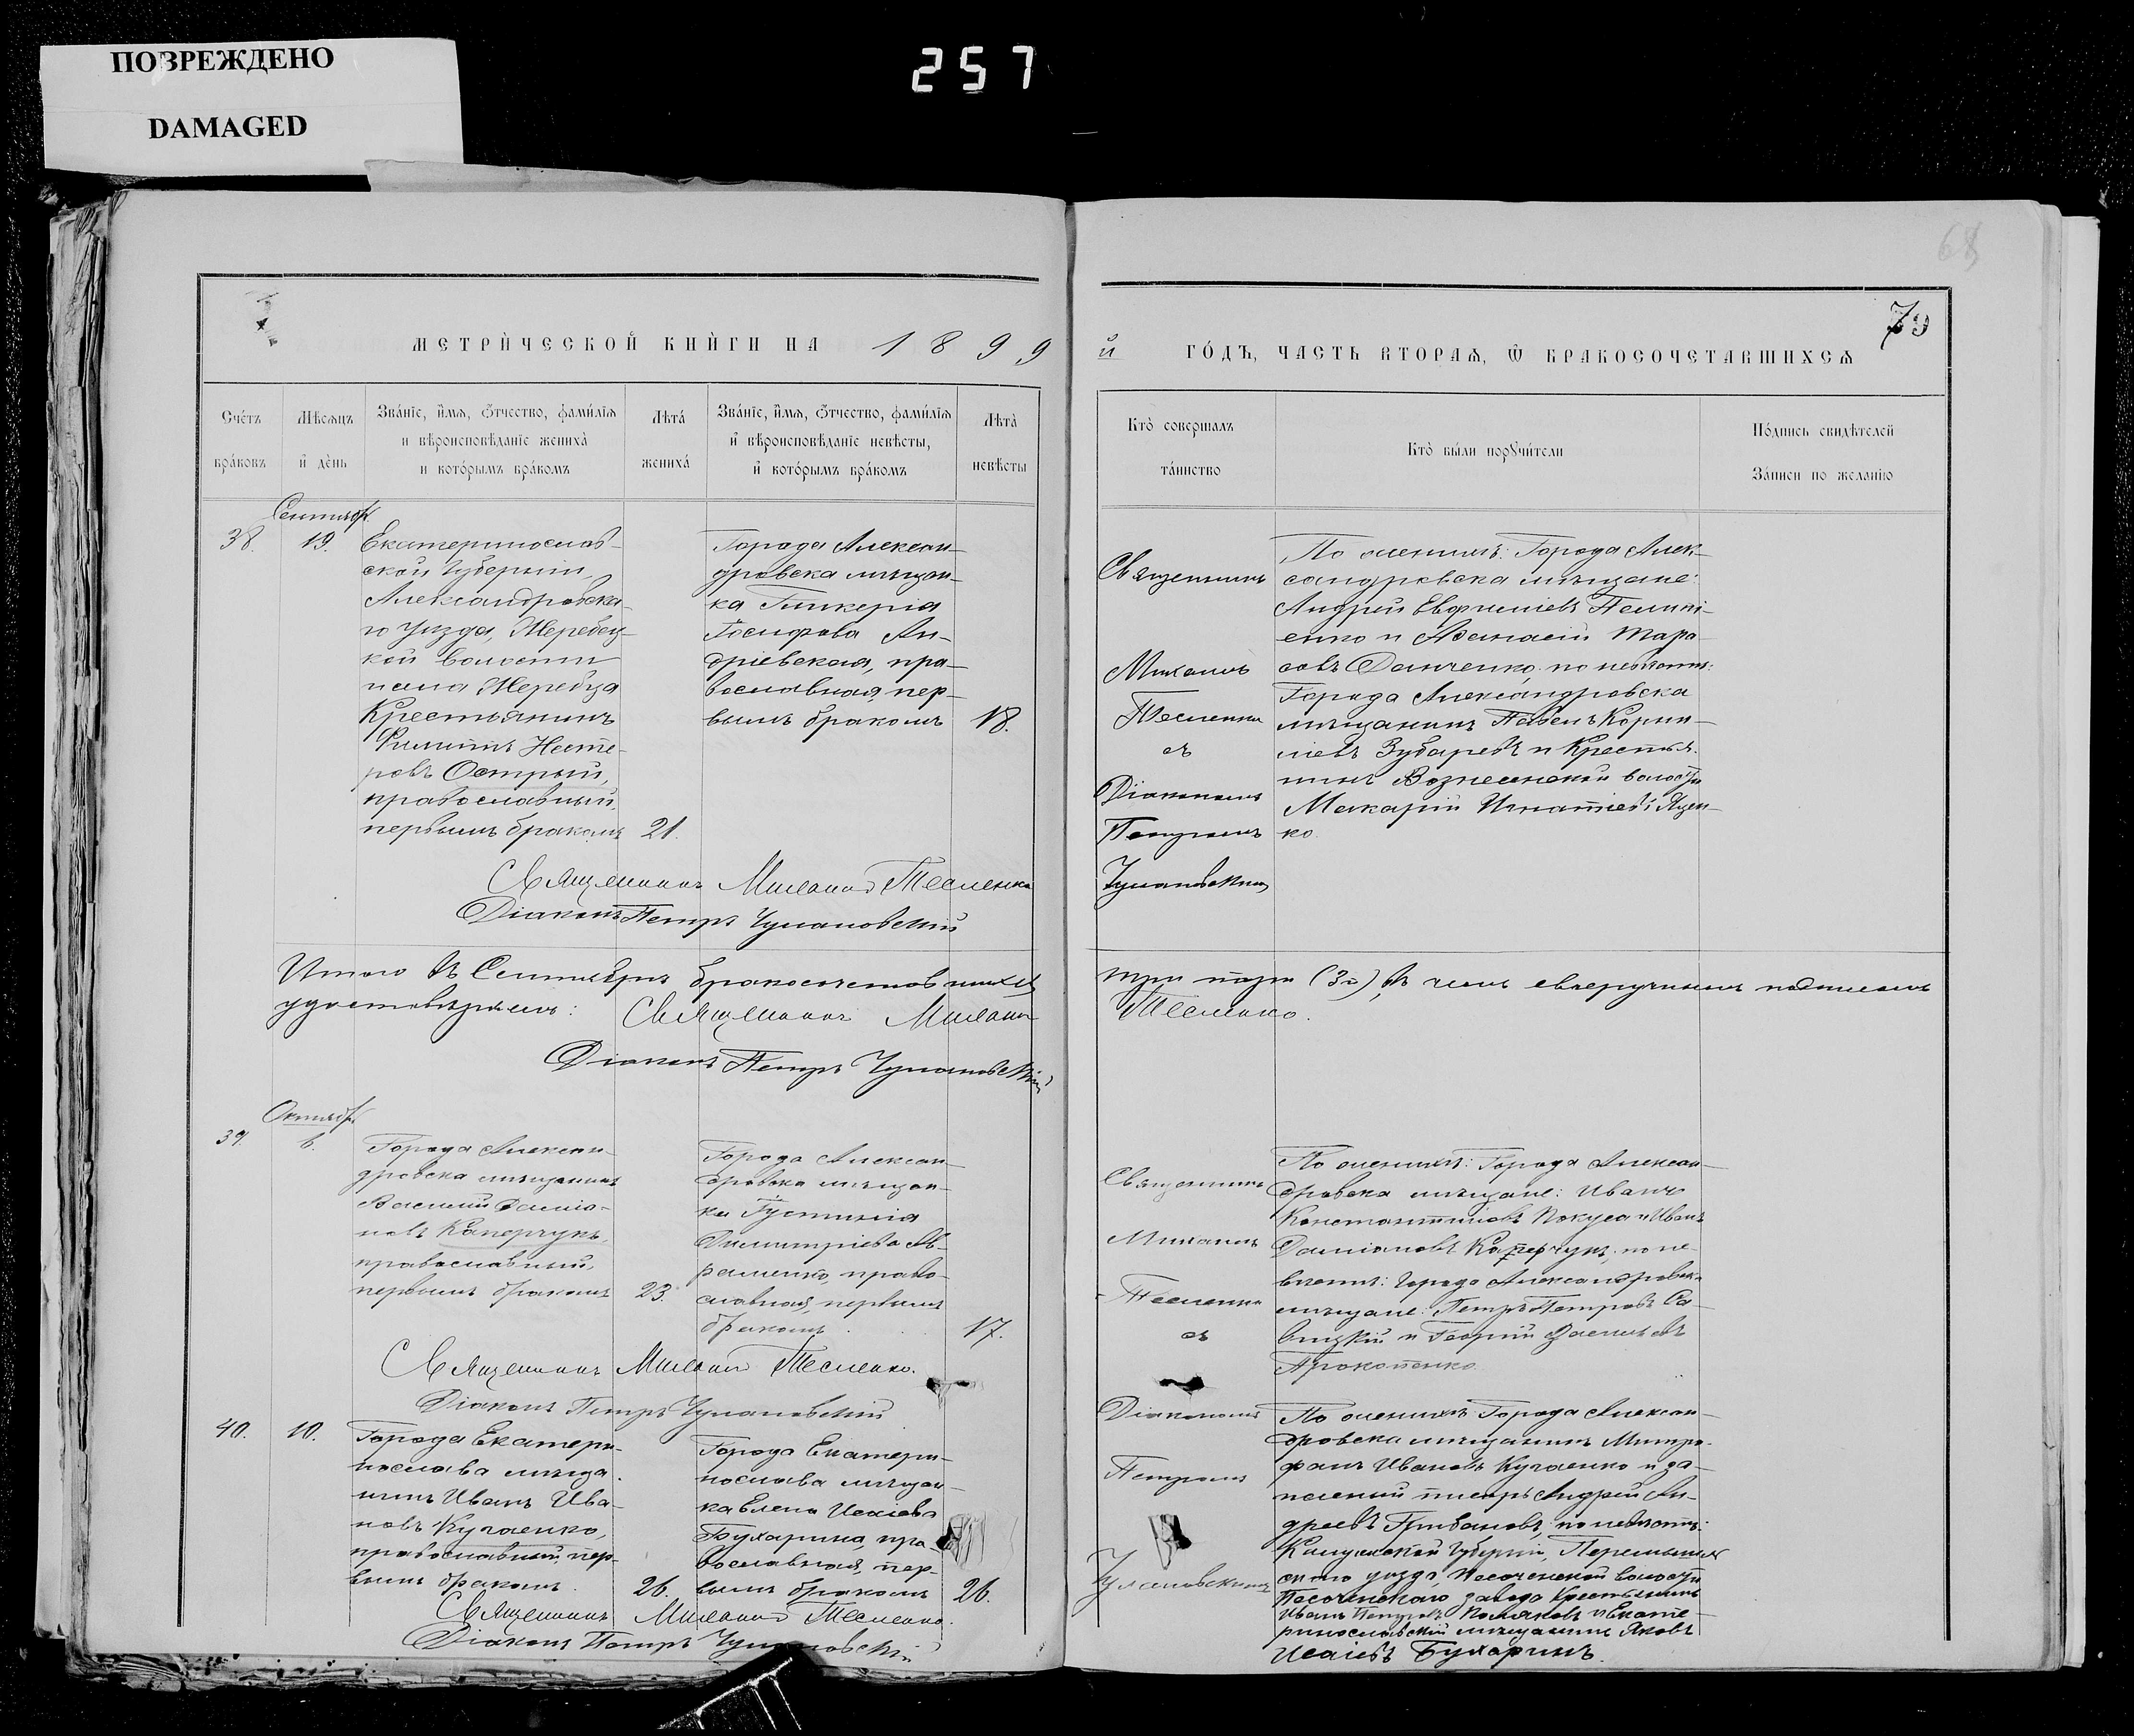 ПОВРЕЖДЕНО
DAMAGED
257
68
79
МЕТРИЧЕСКОЙ КНИГИ НА 1899
й ГОДЪ, ЧАСТЬ ВТОРАЯ, Ѿ БРАКОСОЧЕТАВШИХСЯ
Счетъ браковъ
Мѣсяцъ и день
Званіе, имя, отчество, фамилія
и вѣроисповѣданіе жениха
и которымъ бракомъ
Лѣта жениха
Званіе, имя, отчество, фамилія
и вѣроисповѣданіе невѣсты,
и которымъ бракомъ
Лѣта невѣсты
Кто совершалъ
таинство
Кто были поручители
Подпись свидѣтелей
записи по желанію
Сентябр
38.
19.
Екатеринослав-
ской Губерніи,
Александровска-
го уѣзда, Жеребец-
кой волости
села Жеребца
Крестьянинъ
Филиппъ Несте-
ровъ Острый,
православный,
первымъ бракомъ
21.
Города Алексан-
дровска мѣщан-
ка Гликерія
Іосифова Ан-
дріевская, пра-
вославная, пер-
вымъ бракомъ
18.
Священникъ
Михаилъ
Тесленко
съ
Діакономъ
Петромъ
Чулановскимъ
По женихѣ: Города Алек-
сандровска мѣщане:
Андрей Евфиміевъ
и Аѳанасій Тара-
совъ Данченко, по невѣстѣ:
Города Александровска
мѣщанинъ Павелъ Корни-
ліевъ Зубаревъ и Крестья-
нинъ Вознесенской волости
Макарій Игнатіевъ Яцен-
ко.
Священникъ Михаилъ Тесленко
Діаконъ Петръ Чулановскій
Итого въ Сентябрѣ бракосочетавшихся
три пары (3-и), въ чемъ своеручнымъ подписомъ
удостовѣряемъ: Священникъ Михаилъ
Тесленко.
Діаконъ Петръ Чулановскій
Октябр
39.
6.
Города Алексан-
дровска мѣщанинъ
Василій Даміа-
новъ Каперчукъ,
православный,
первымъ бракомъ
23.
Города Алексан-
дровска мѣщан-
ка Іустинія
Димитріева Ав-
раменко, право-
славная, первымъ
бракомъ
17.
Священникъ
Михаилъ
Тесленко
съ
По женихѣ: Города Алексан-
дровска мѣщане: Иванъ
Константиновъ Покуса и Иванъ
Даміановъ Каперчукъ, по не-
вѣстѣ: Города Александровска
мѣщане: Петръ Петровъ Са-
вицкій и Георгій Васильевъ
Прокопенко.
Священникъ Михаилъ Тесленко.
Діаконъ Петръ Чулановскій
40.
10.
Города Екатери-
нослава мѣща-
нинъ Иванъ Ива-
новъ Кугаенко,
православный, пер-
вымъ бракомъ
26.
Города Екатери-
нослава мѣщан-
ка Елена Исаіева
Бухарина, пра-
вославная, пер-
вымъ бракомъ
26.
Діакономъ
Петромъ
Чулановскимъ
По женихѣ: Города Алексан-
дровска мѣщанинъ Митро-
фанъ Ивановъ Кугаенко и за-
пасный писарь Андрей Ан-
дреевъ Грибановъ, по невѣстѣ:
Калужской Губерніи, Перемышль-
скаго уѣзда, Песоченской волости
Песоченскаго завода Крестьянинъ
Иванъ Петровъ Поляковъ и Екате-
ринославскій мѣщанинъ Яковъ
Исаіевъ Бухаринъ.
Священникъ Михаилъ Тесленко.
Діаконъ Петръ Чулановскій